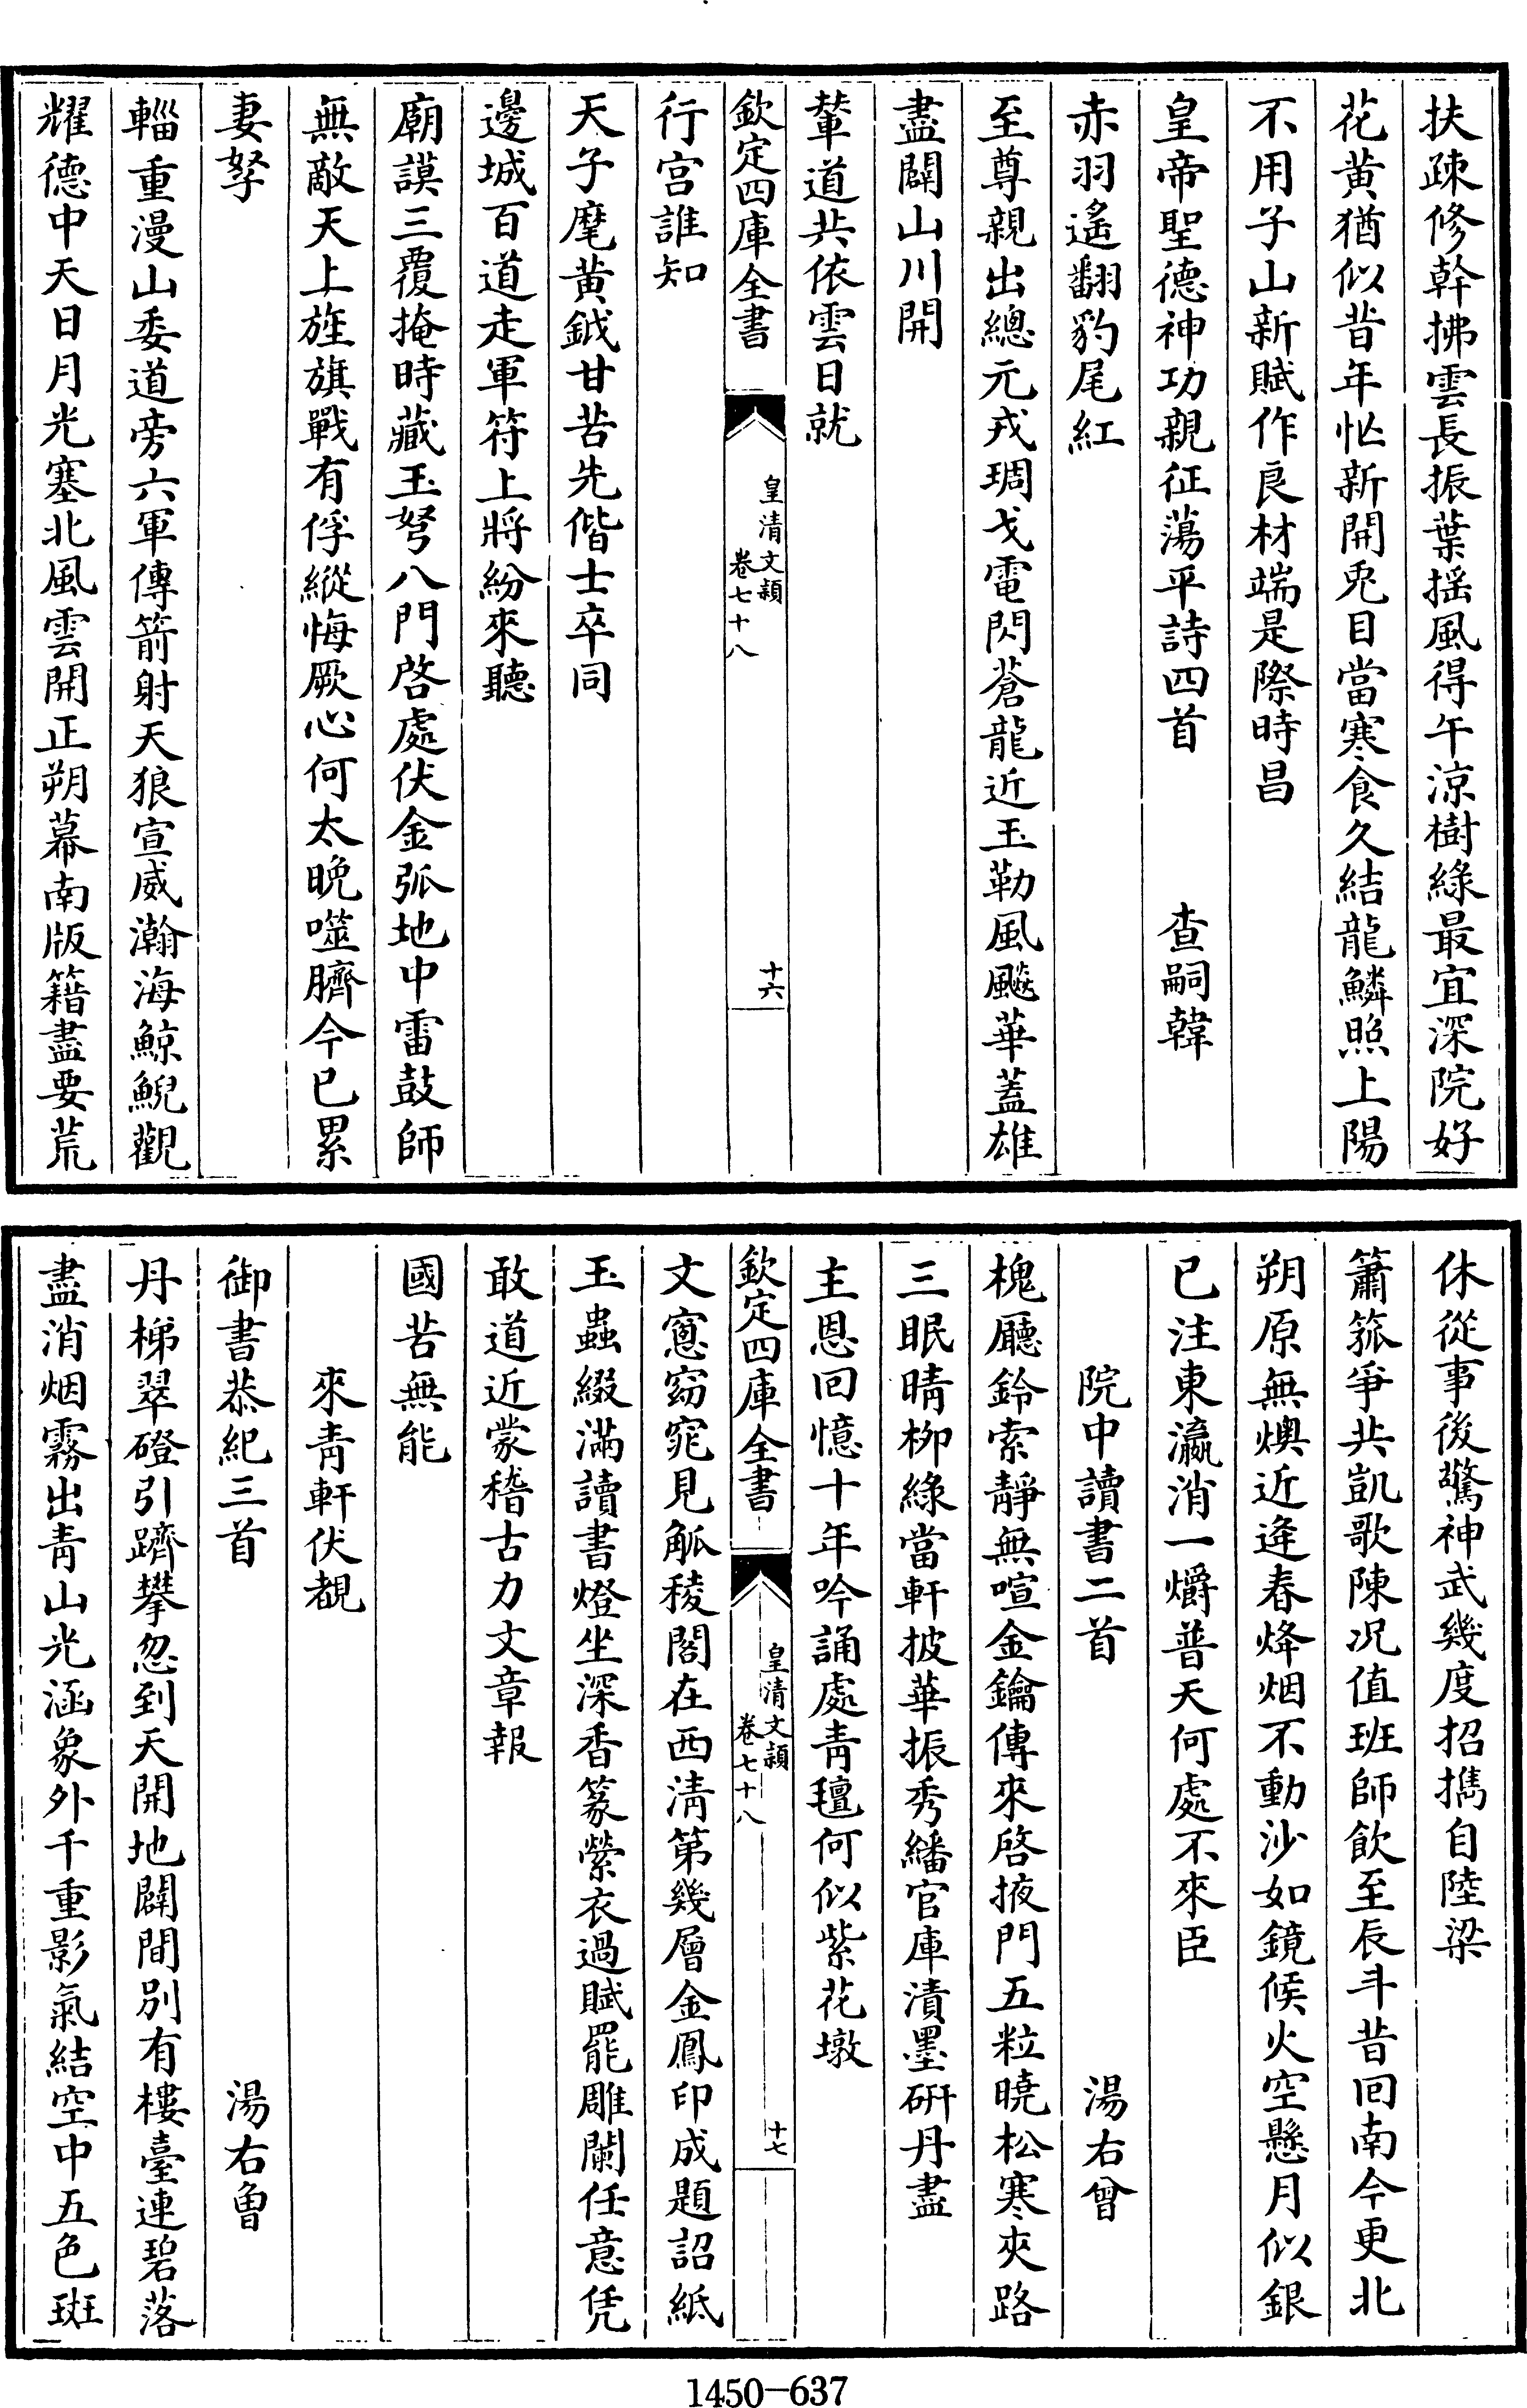 扶疎修幹拂雲長振葉揺風得午涼樹綠最宜深院好
花黄猶似昔年忙新開兎目當寒食久結龍鱗照上陽
不用子山新賦作良材端是際時昌
皇帝聖德神功親征蕩平詩四首　查嗣韓
赤羽遙翻豹尾紅
至尊親出總元戎琱戈電閃蒼龍近玉勒風飈華蓋雄
盡闢山川開
輦道共依雲日就
欽定四庫全書
皇清文穎
卷七十八
十六
行宫誰知
天子麾黄鉞甘苦先偕士卒同
邊城百道走軍符上將紛來聽
廟謨三覆掩時藏玉弩八門啓處伏金弧地中雷鼓師
無敵天上旌旗戰有俘縱悔厥心何太晩噬臍今已累
妻孥
輜重漫山委道旁六軍傳箭射天狼宣威瀚海鯨鯢觀
耀德中天日月光塞北風雲開正朔幕南版籍盡要荒
休從事後驚神武幾度招攜自陸梁
簫笳爭共凱歌陳况值班師飲至辰斗昔回南今更北
朔原無燠近逄春烽烟不動沙如鏡候火空懸月似銀
已注東瀛消一爝普天何處不來臣
院中讀書二首　湯右曾
槐廳鈴索靜無喧金鑰傳來啓掖門五粒曉松寒夾路
三眠晴栁綠當軒披華振秀繙官庫漬墨硏丹盡
主恩回憶十年吟誦處青氊何似紫花墩
欽定四庫全書
皇清文穎
卷七十八
十七
文窻窈窕見觚稜閣在西清第幾層金鳳印成題詔紙
玉蟲綴滿讀書燈坐深香篆縈衣過賦罷雕闌任意凭
敢道近蒙稽古力文章報
國苦無能
來青軒伏覩
御書恭紀三首　湯右曾
丹梯翠磴引躋攀忽到天開地闢間别有樓臺連碧落
盡消烟霧出青山光涵象外千重影氣結空中五色斑
1450-637